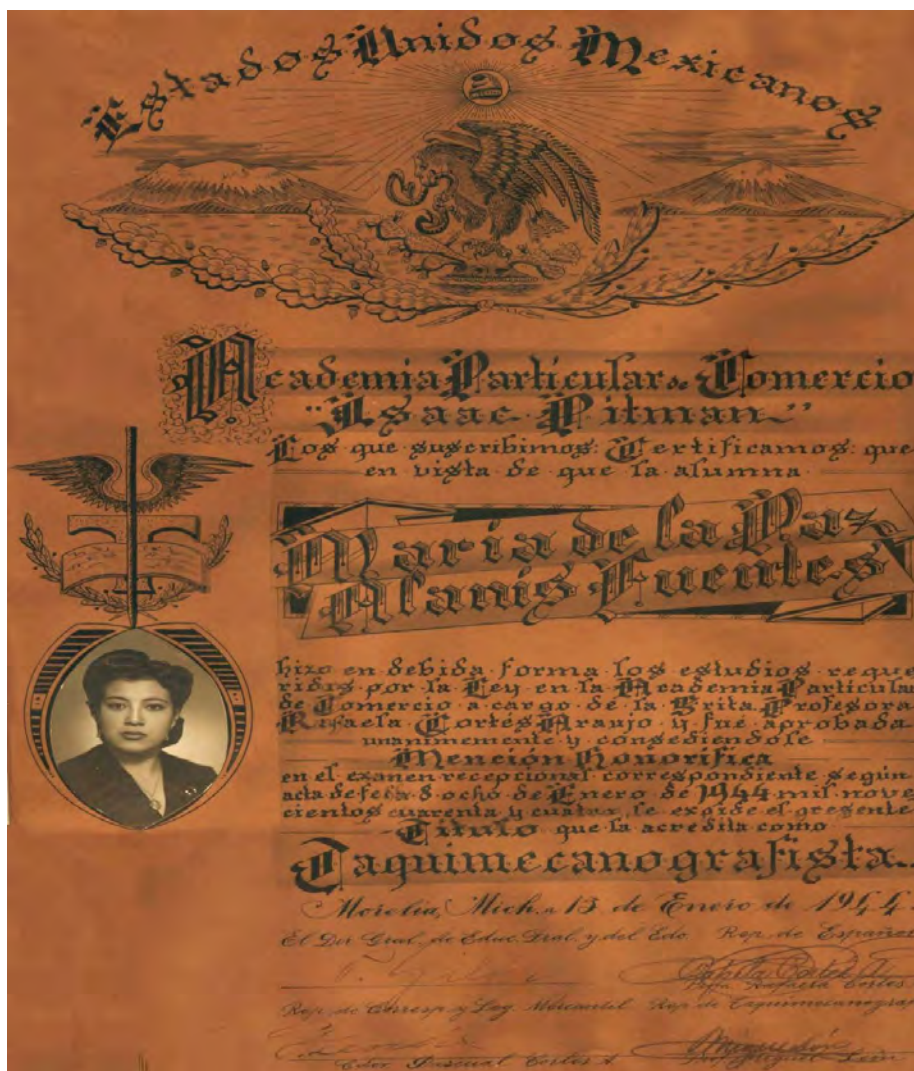 Estados Unidos Mexicanos
Academia Particular de Comercio
"Isaac Pitman"
Los que suscribimos: Certificamos: que
en vista de que la alumna
Maria de la Paz
Alanis Fuentes
hizo en debida forma los estudios reque
ridos por la Ley en la Academia Particular
de Comercio a cargo de la Srita. Profesora
Rafaela Cortés Araujo y fué aprobada
unanimemente y consediendole
Mención Honorifica
en el examen recepcional correspondiente según
acta de fecha 8 ocho de Enero de 1944 mil nove
cientos cuarenta y cuatro, le expide el presente
Titulo que la acredita como
Taquimecanografista.
Morelia, Mich., a 13 de Enero de 1944.
El Dir Gral. de Educ. Fral. y del Edo. Rep. de Español
Profa Rafaela Cortes
Rep. de Corresp. y Leg. Mercantil Rep. de Taquimecanograf
Pascual Cortés A Miguel León